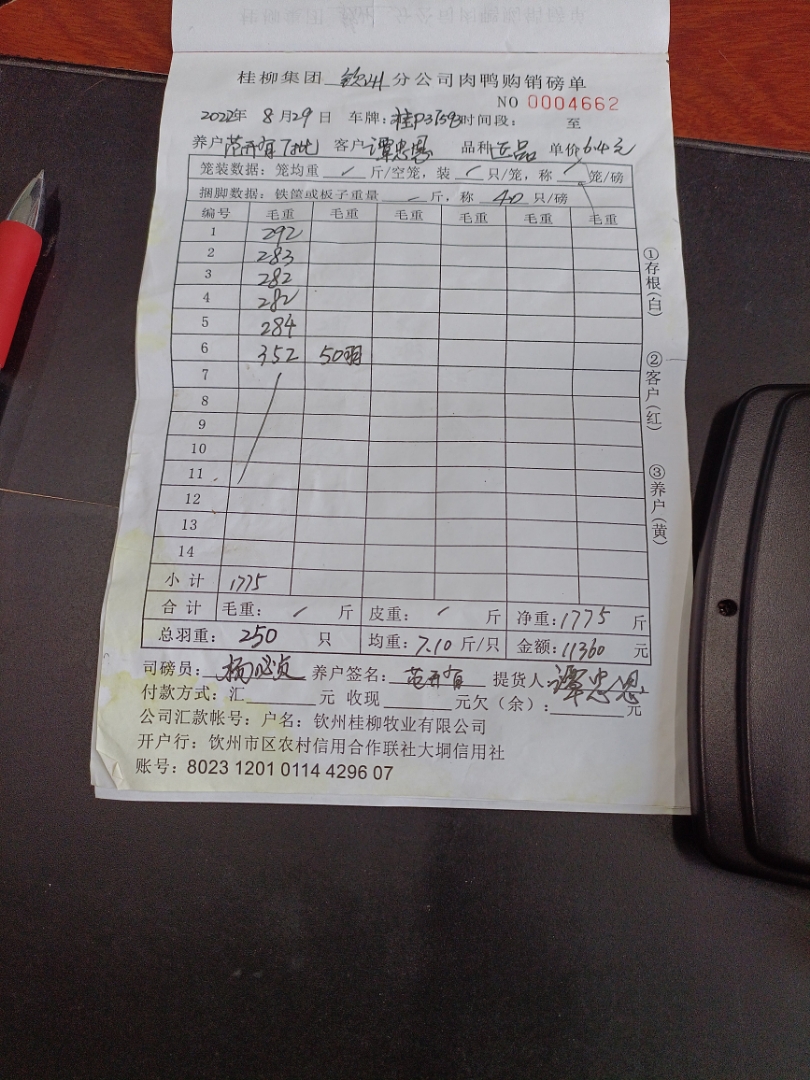 桂柳集团 钦州 分公司肉鸭购销磅单
NO 0004662
2022年 8月29日 车牌: 时间段: 至
养户 范开有 客户 谭忠恩 品种 正品 单价 6.4元
笼装数据:笼均重 / 斤/空笼,装 / 只/笼,称 / 笼/磅
捆脚数据:铁筐或板子重量 / 斤,称 40 只/磅
编号 毛重 毛重 毛重 毛重 毛重 毛重
1 292
2 283
3 282
4 282
5 284
6 352 50羽
7
8
9
10
11
12
13
14
小计 1775
合计 毛重: / 斤 皮重: / 斤 净重:1775 斤
总羽重: 250 只 均重:7.10 斤/只 金额:11360 元
司磅员: 养户签名: 范开有 提货人:谭忠恩
付款方式:汇 元 收现 元欠(余): 元
公司汇款帐号:户名:钦州桂柳牧业有限公司
开户行:钦州市区农村信用合作联社大垌信用社
账号:8023 1201 0114 4296 07
①存根(白)
②客户(红)
③养户(黄)